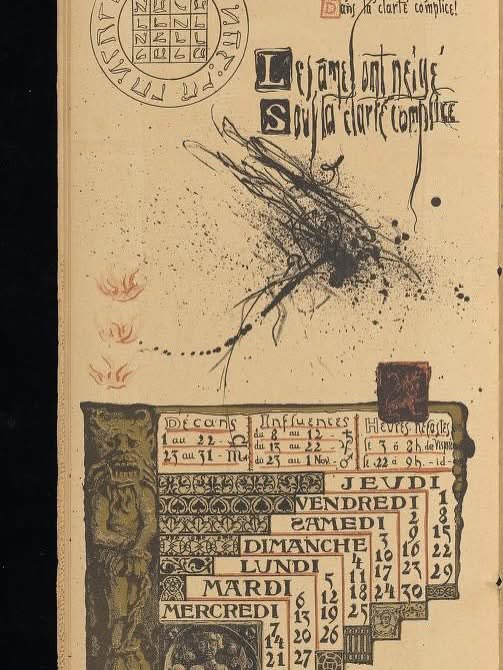 Dans la clarté complice!
Les âmes ont neigé
Sous la clarté complice
Décans Influences Heures Néfastes
1 au 22 - ♎ du 8 au 12 - ♄ le 3 à 8h. du
23 au 31 - ♏ du 13 au 22 - le 22 à 9h. - id -
du 23 au 1 Nov. - ♂
JEUDI 1 8 15 22 29
VENDREDI 2 9 16 23 30
SAMEDI 3 10 17 24
DIMANCHE 4 11 18 25
LUNDI 5 12 19 26
MARDI 6 13 20 27
MERCREDI 7 14 21